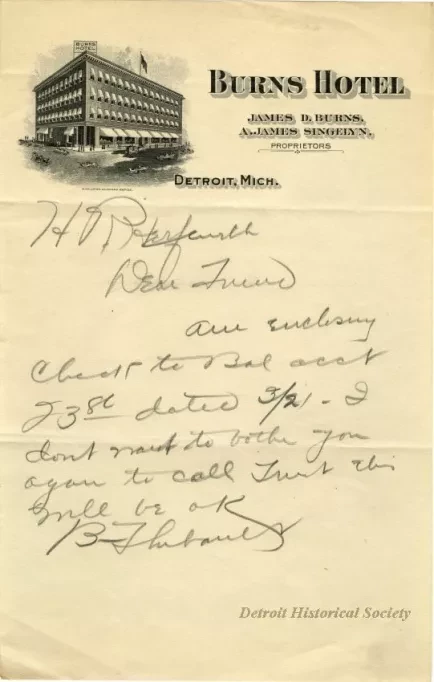 BURNS HOTEL
BURNS HOTEL
JAMES D. BURNS.
A. JAMES SINGELYN.
PROPRIETORS
DETROIT, MICH.
H
Dear Friend
am enclosing
Check to Bal acct
23 80 dated 3/21 - I
dont want to bother you
again to call Trust this
will be ok
B Thibault
Detroit Historical Society